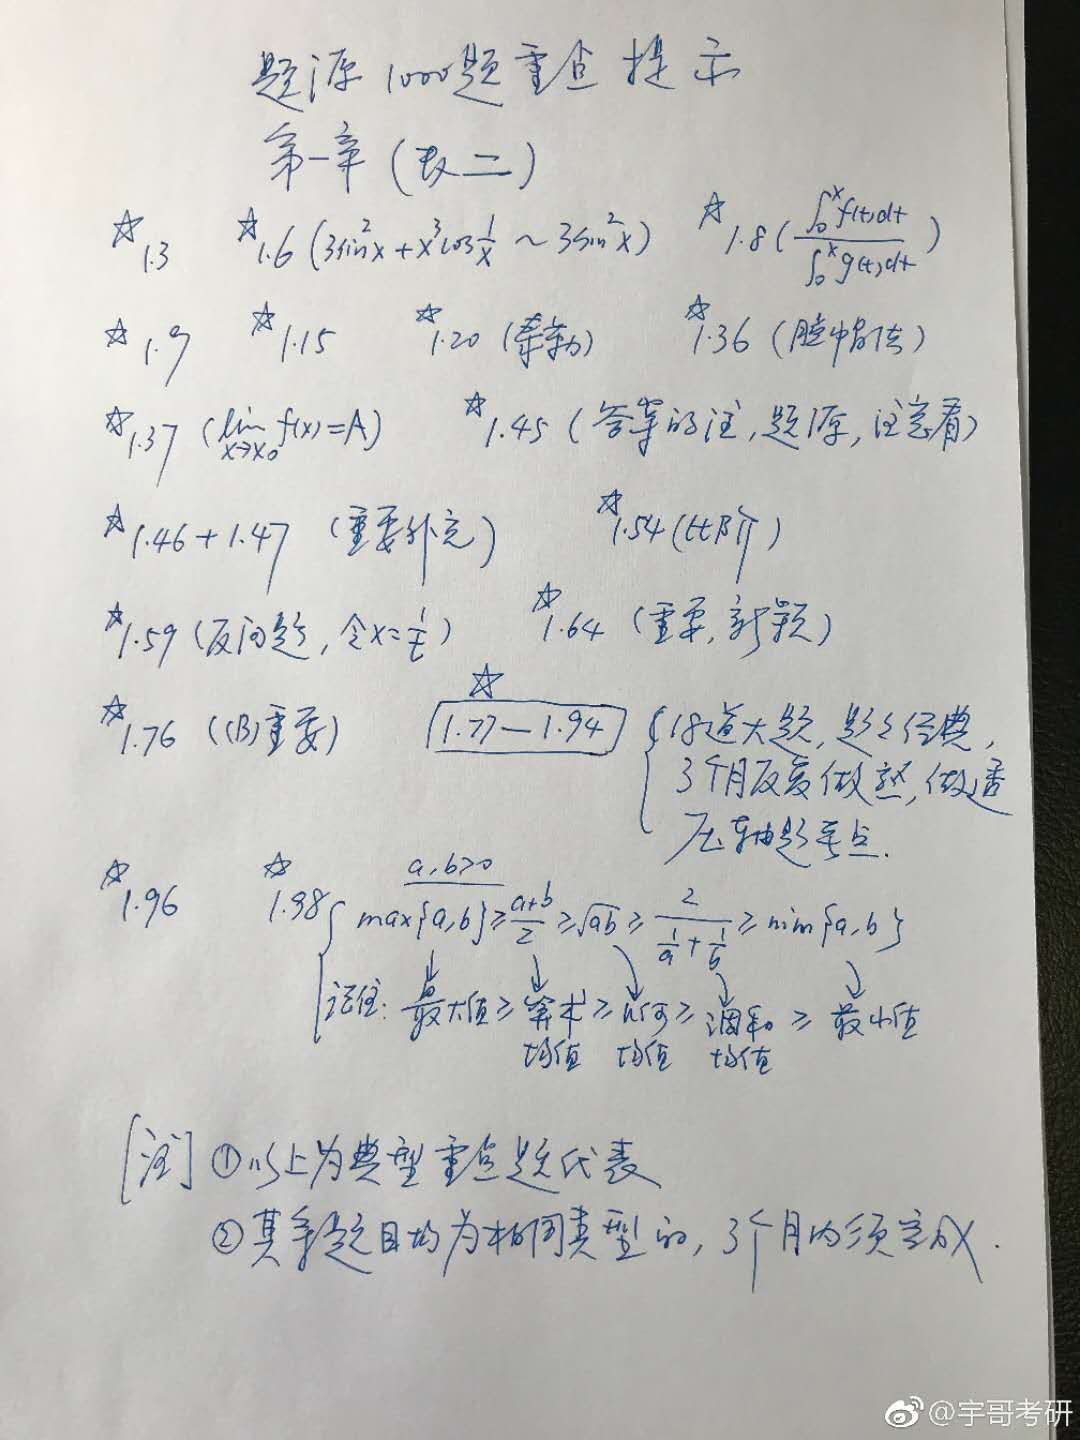 题源1000题重点提示
第一章(数二)
☆1.3 ☆1.6 (3sin²x+x³cos1/x ~ 3sin²x) ☆1.8 (∫₀ˣf(t)dt / ∫₀ˣg(t)dt)
☆1.9 ☆1.15 ☆1.20 (泰勒) ☆1.36 (脱帽法)
☆1.37 (lim x→x₀ f(x)=A) ☆1.45 (答案的注,题源,注意看)
☆1.46+1.47 (重要补充) ☆1.54 (比阶)
☆1.59 (反问题,令x=1/t) ☆1.64 (重要,新颖)
☆1.76 ((B)重要) ☆1.77—1.94 {18道大题,题题经典,
3个月反复做熟,做透
压轴题考点.
a,b>0
☆1.96 ☆1.98 { max{a,b}≥(a+b)/2≥√ab≥2/(1/a+1/b)≥min{a,b}
记住: 最大值≥算术均值≥几何均值≥调和均值≥最小值
[注] ①以上为典型重点题代表
②其余题目均为相同类型的,3个月内须完成.
@宇哥考研